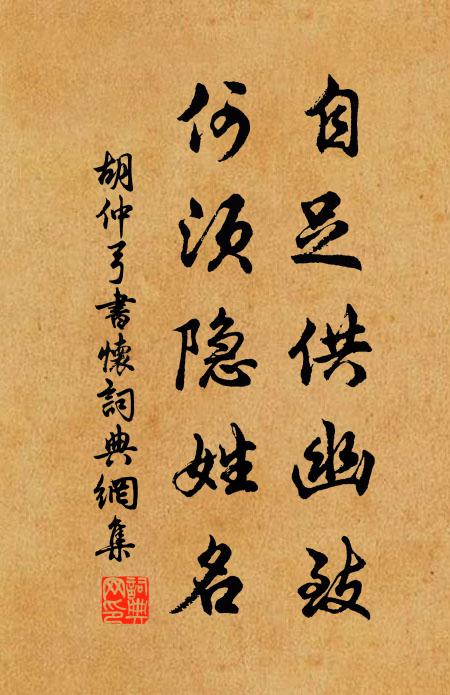 自足供幽致
何须隐姓名
胡仲弓書懷詞典網集
詞典网印